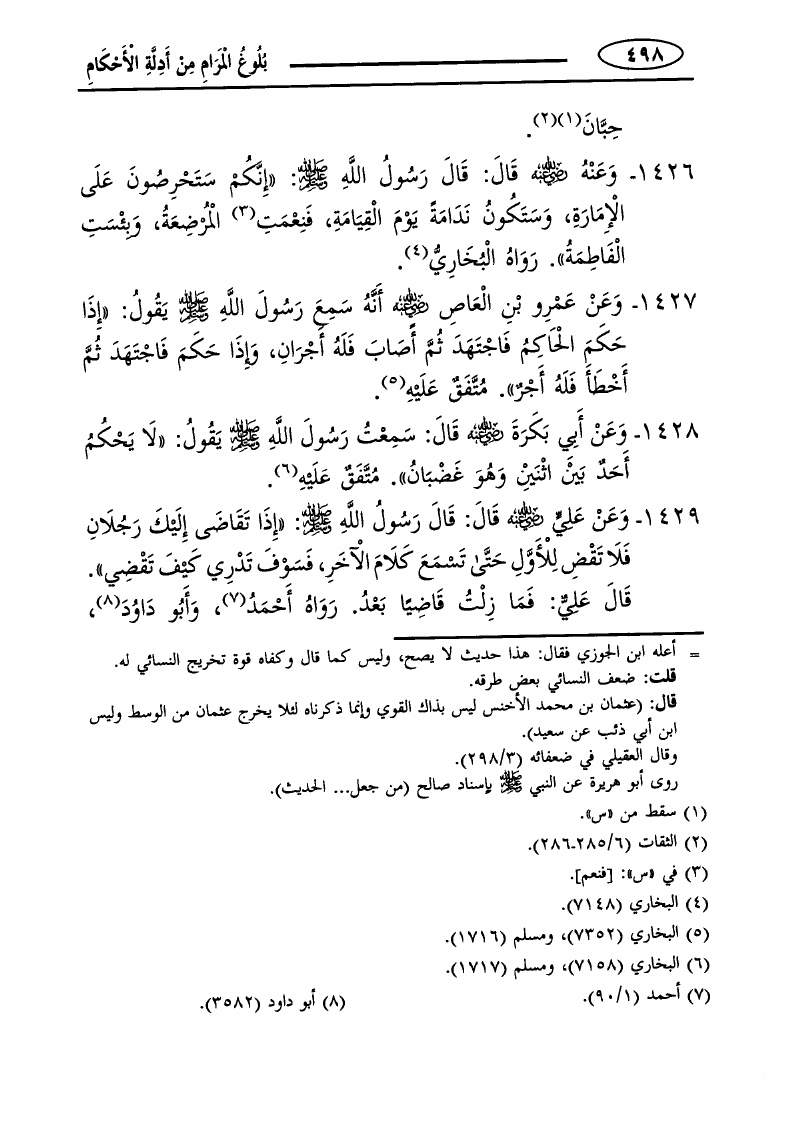 ٤٩٨ بُلُوغُ الْمَرَامِ مِنْ أَدِلَّةِ الْأَحْكَامِ
حِبَّانَ(١)(٢).
١٤٢٦ـ وَعَنْهُ ﷺ قَالَ: قَالَ رَسُولُ اللَّهِ ﷺ: «إِنَّكُمْ سَتَحْرِصُونَ عَلَى
الْإِمَارَةِ، وَسَتَكُونُ نَدَامَةً يَوْمَ الْقِيَامَةِ، فَنِعْمَتِ(٣) الْمُرْضِعَةُ، وَبِئْسَتِ
الْفَاطِمَةُ». رَوَاهُ الْبُخَارِيُّ(٤).
١٤٢٧ـ وَعَنْ عَمْرِو بْنِ الْعَاصِ رضي الله عنه أَنَّهُ سَمِعَ رَسُولَ اللَّهِ ﷺ يَقُولُ: «إِذَا
حَكَمَ الْحَاكِمُ فَاجْتَهَدَ ثُمَّ أَصَابَ فَلَهُ أَجْرَانِ، وَإِذَا حَكَمَ فَاجْتَهَدَ ثُمَّ
أَخْطَأَ فَلَهُ أَجْرٌ». مُتَّفَقٌ عَلَيْهِ(٥).
١٤٢٨ـ وَعَنْ أَبِي بَكَرَةَ رضي الله عنه قَالَ: سَمِعْتُ رَسُولَ اللَّهِ ﷺ يَقُولُ: «لَا يَحْكُمُ
أَحَدٌ بَيْنَ اثْنَيْنِ وَهُوَ غَضْبَانُ». مُتَّفَقٌ عَلَيْهِ(٦).
١٤٢٩ـ وَعَنْ عَلِيٍّ رضي الله عنه قَالَ: قَالَ رَسُولُ اللَّهِ ﷺ: «إِذَا تَقَاضَى إِلَيْكَ رَجُلَانِ
فَلَا تَقْضِ لِلْأَوَّلِ حَتَّىٰ تَسْمَعَ كَلَامَ الْآخَرِ، فَسَوْفَ تَدْرِي كَيْفَ تَقْضِي».
قَالَ عَلِيٌّ: فَمَا زِلْتُ قَاضِيًا بَعْدُ. رَوَاهُ أَحْمَدُ(٧)، وَأَبُو دَاوُدَ(٨)،
= أعله ابن الجوزي فقال: هذا حديث لا يصح، وليس كما قال وكفاه قوة تخريج النسائي له.
قلت: ضعف النسائي بعض طرقه.
قال: (عثمان بن محمد الأخنس ليس بذاك القوي وإنما ذكرناه لئلا يخرج عثمان من الوسط وليس
ابن أبي ذئب عن سعيد).
وقال العقيلي في ضعفائه (٢٩٨/٣).
روى أبو هريرة عن النبي ﷺ بإسناد صالح (من جعل... الحديث).
(١) سقط من «س».
(٢) الثقات (٢٨٥/٦ـ٢٨٦).
(٣) في «س»: [فنعم].
(٤) البخاري (٧١٤٨).
(٥) البخاري (٧٣٥٢)، ومسلم (١٧١٦).
(٦) البخاري (٧١٥٨)، ومسلم (١٧١٧).
(٧) أحمد (٩٠/١). (٨) أبو داود (٣٥٨٢).